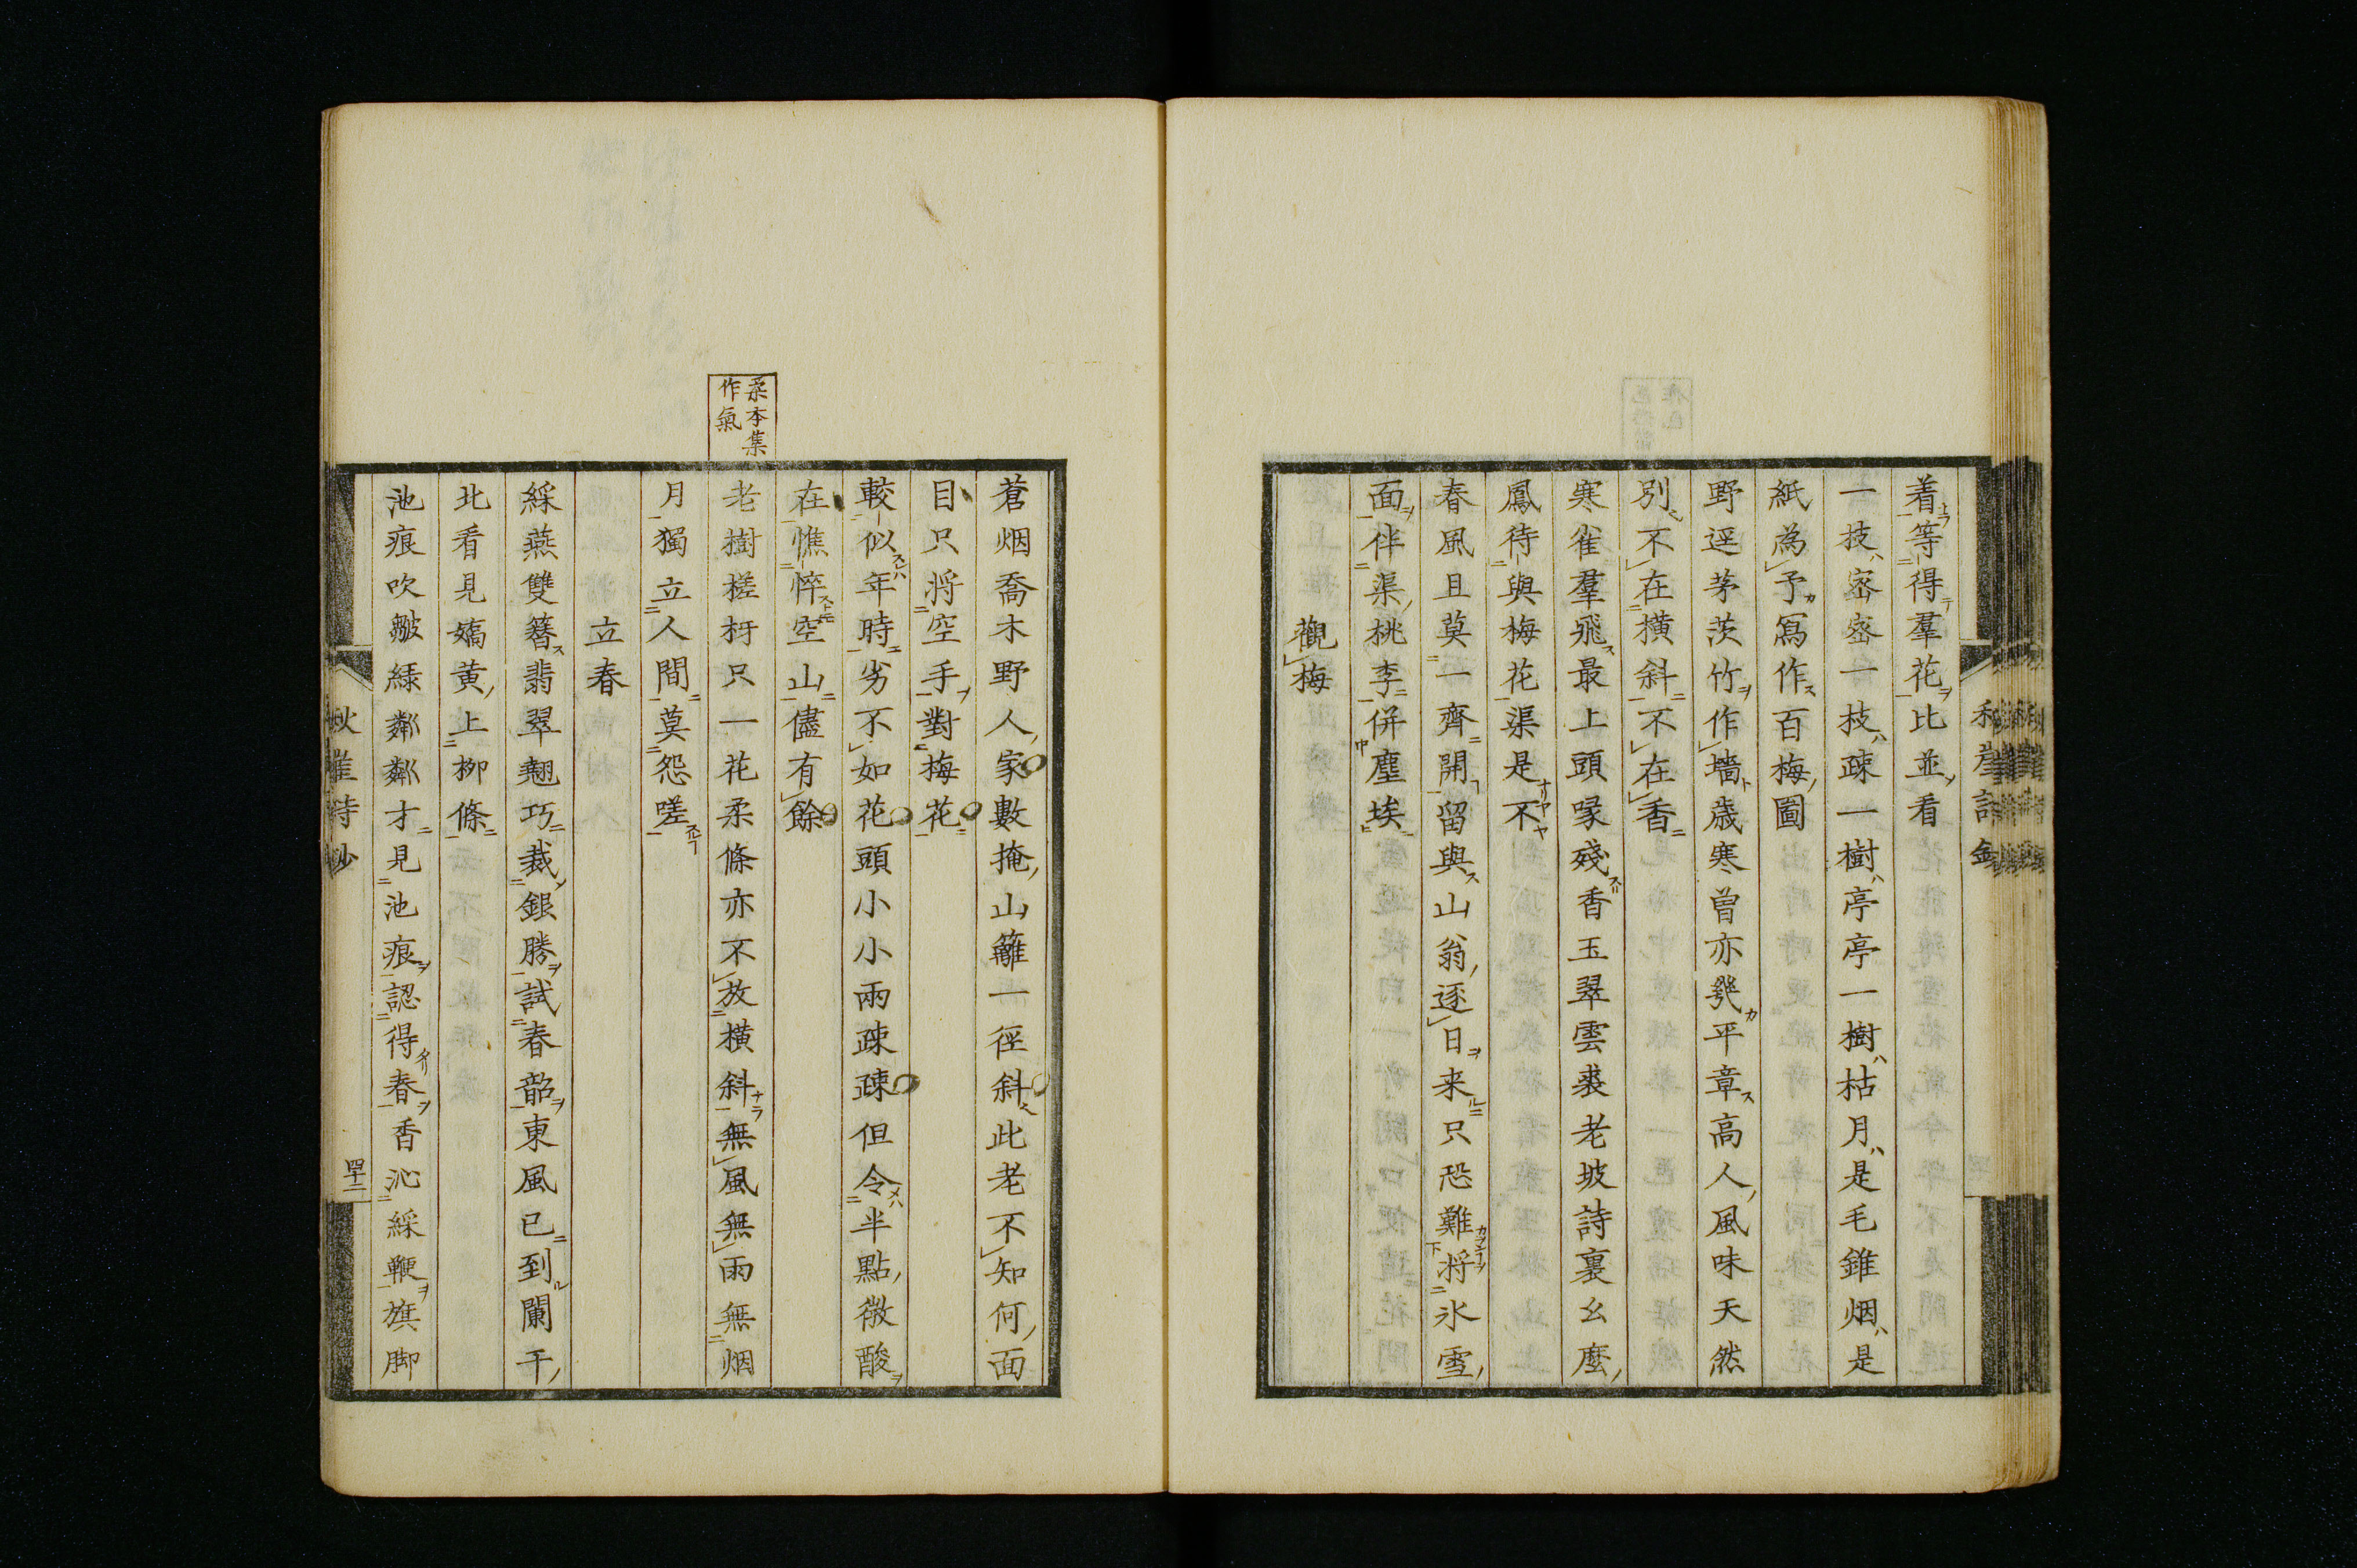 着等得羣花比並看
一技密密一枝疎一樹亭亭一樹枯月是毛錐烟是
紙為予寫作百梅圖
野逕茅茨竹作墻歳寒曽亦發平章高人風味天然
別不在横斜不在香
寒雀羣飛最上頭喙殘香玉翠雲裘老坡詩裏幺麼
鳳待與梅花渠是不
春風且莫一齊開留與山翁逐日来只恐難将氷雪
面伴渠桃李併塵埃
觀梅
蒼烟喬木野人家數掩山籬一徑斜此老不知何面
目只将空手對梅花
較似年時劣不如花頭小小兩疎疎但令半點微酸
在憔悴空山儘有餘
柔本集
作氣
老樹槎枒只一花柔條亦不放横斜無風無雨無烟
月獨立人間莫怨嗟
立春
綵燕雙簪翡翠翹巧裁銀勝試春韶東風已到闌干
北看見嬌黄上柳條
池痕吹皺緑粼粼才見池痕認得春香沁綵鞭旗脚
秋崖詩鈔
四十二